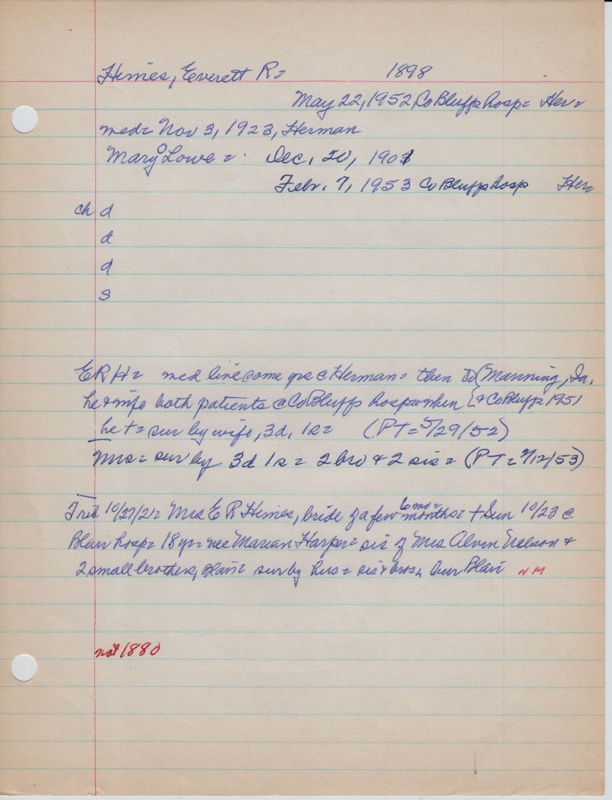 Himes, Everett R= 1898
May 22, 1952 Co Bluffs hosp= Her=
med= Nov 3, 1923, Herman
Mary Lowe= Dec. 20, 1901
Febr. 7, 1953 Co Bluffs hosp Her
ch d
d
d
s
ERH= med live some yrs @ Herman= then to {Manning, Ia,
he & wife both patients @ Co Bluffs hosp when {& Co Bluffs 1951
he += sur by wife, 3d, 1s= (PT=5/29/52)
Mrs= sur by 3d 1s= 2 bro & 2 sis= (PT=2/12/53)
Trib 10/27/21= Mrs E R Himes, bride of a few 6 mo= months= + Sun 10/23 @
Blair hosp= 18 yr= nee Marian Harper= sis of Mrs Alvin Nelson &
2 small brothers, Blair= sur by hus= sis & bros, bur Blair NM
not 1880